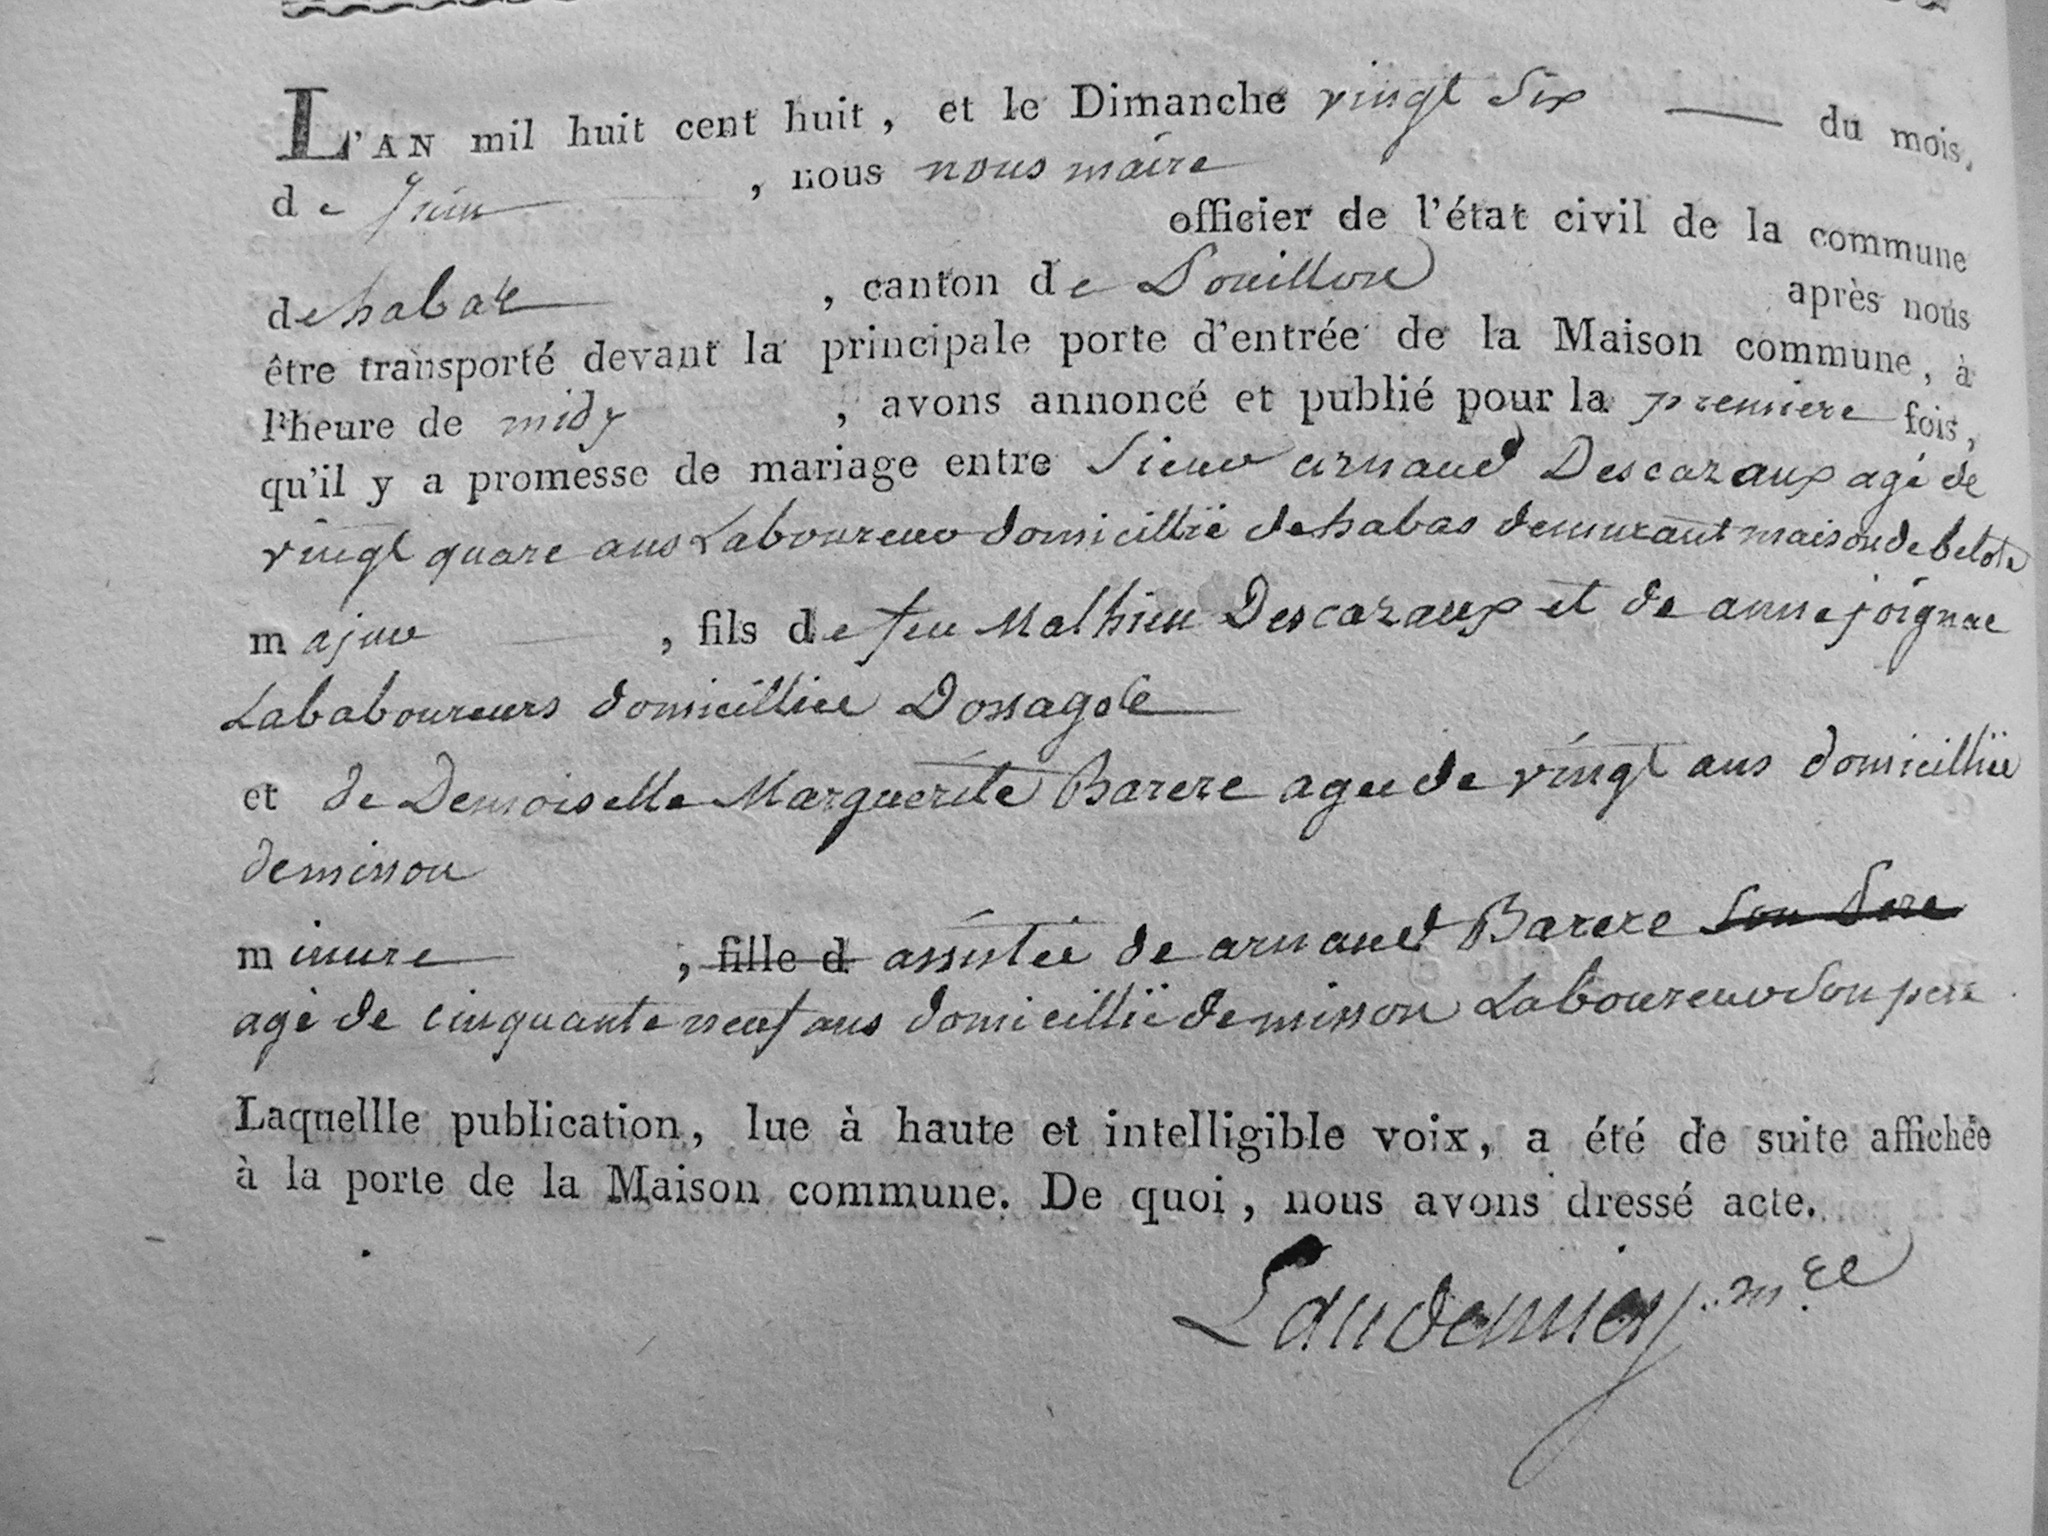 L'AN mil huit cent huit, et le Dimanche vingt Six du mois
de Juin, nous nous maire
officier de l'état civil de la commune
de habas, canton de Pouillon après nous
être transporté devant la principale porte d'entrée de la Maison commune, à
l'heure de midy, avons annoncé et publié pour la premiere fois,
qu'il y a promesse de mariage entre Sieur arnaud Descazaux agé de
vingt quare ans Laboureur domicillié de habas demurant maison de belota
majur, fils de feu Mathieu Descazaux et de anne joignac
Lababoureurs domicilliee Dossages
et de Demoiselle Marguerite Barere agee de vingt ans domicilliee
de misson
minure, fille d assistée de arnaud Barere Son Pere
agé de cinquante neuf ans domicillié de misson Laboureur Son pere
Laquellle publication, lue à haute et intelligible voix, a été de suite affichée
à la porte de la Maison commune. De quoi, nous avons dressé acte.